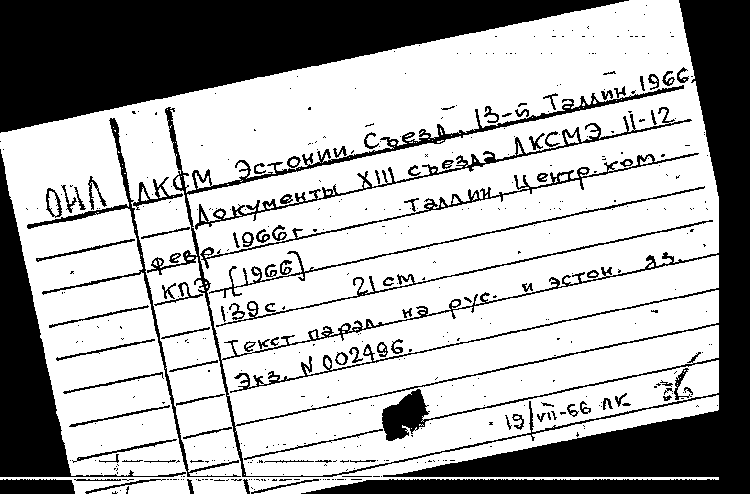 ОНЛ ЛКСМ Эстонии. Съезд, 13-й. Таллин. 1966.
Документы XIII съезда ЛКСМЭ. 11-12
февр. 1966 г. Таллин, Центр. ком.
КПЭ, [1966].
139 с. 21 см.
Текст парал. на рус. и эстон. яз.
Экз. N 002496.
19/VII-66 ЛК